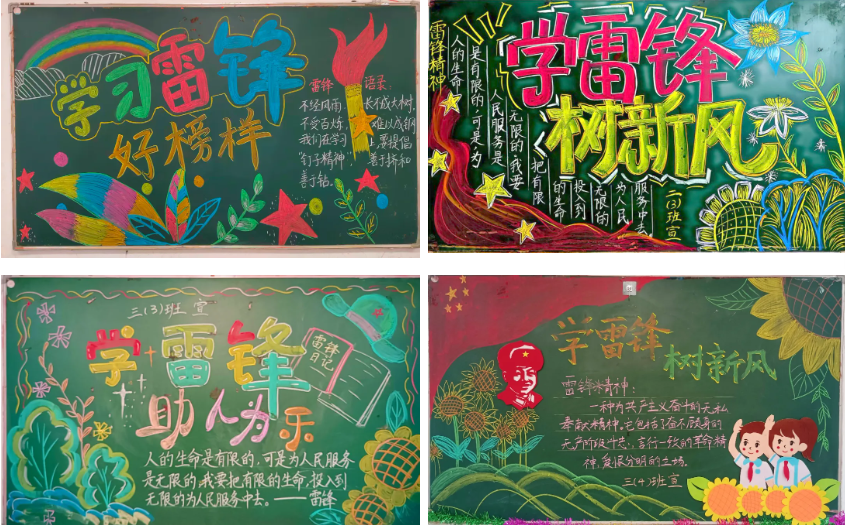 学习雷锋
好榜样
雷锋 语录:
不经风雨,长不成大树,
不受百炼,难以成钢
我们在学习
上,要提倡
"钉子精神"
善于挤和
善于钻。
学雷锋
树新风
雷锋精神
人的生命
是有限的,可是为
人民服务是
无限的,我要
把有限
的生命
投入到
无限的
为人民
服务中去。
二(3)班宣
三(3)班 宣
学雷锋
助人为乐
雷锋
日记
人的生命是有限的,可是为人民服务
是无限的,我要把有限的生命,投入到
无限的为人民服务中去。——雷锋
学雷锋
树新风
雷锋精神:
一种为共产主义奋斗的无私
奉献精神。它包括了奋不顾身的
无产阶级斗志,言行一致的革命精
神,爱恨分明的立场。
三(4)班宣